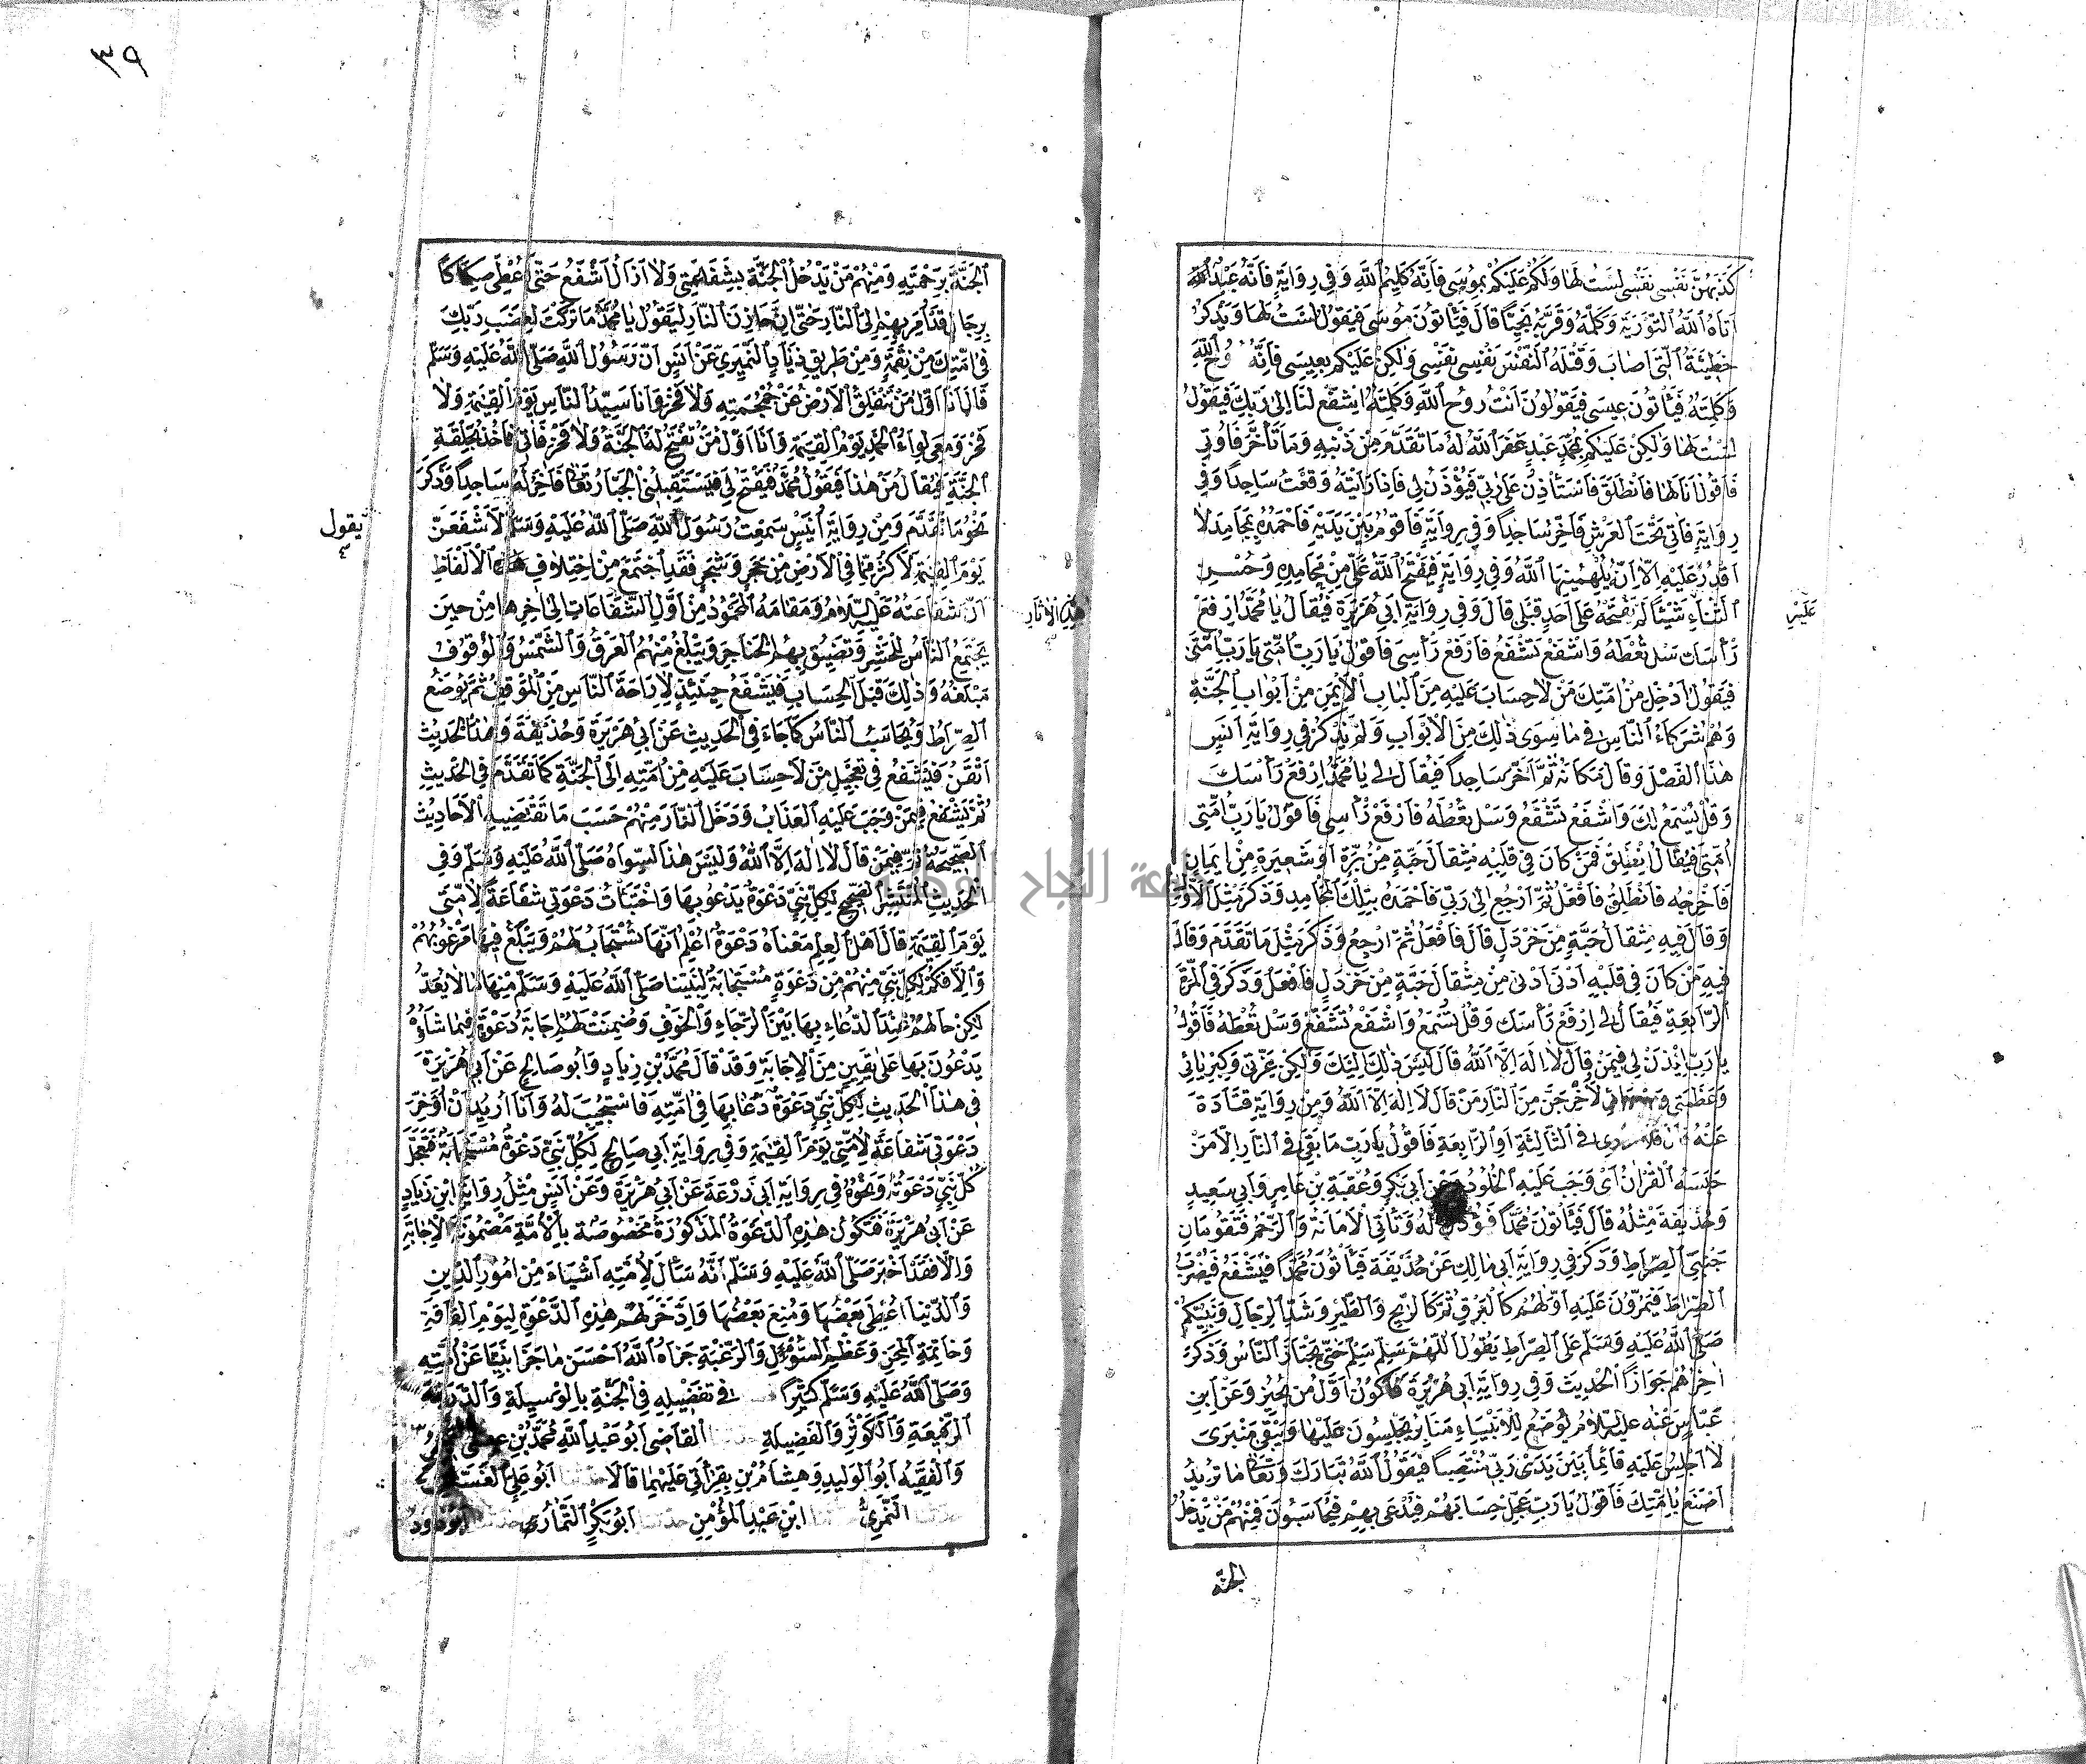 كَذَبَهُنَّ نَفْسِي نَفْسِي لَسْتُ لَهَا وَلَكِنْ عَلَيْكُمْ بِمُوسَى فَإِنَّهُ كَلِيمُ اللَّهِ وَفِي رِوَايَةٍ فَإِنَّهُ عَبْدٌ
آتَاهُ اللَّهُ التَّوْرَيةَ وَكَلَّمَهُ وَقَرَّبَهُ نَجِيًّا قَالَ فَيَأْتُونَ مُوسَى فَيَقُولُ لَسْتُ لَهَا وَيَذْكُرُ
خَطِيئَتَهُ الَّتِي أَصَابَ وَقَتْلَهُ النَّفْسَ نَفْسِي نَفْسِي وَلَكِنْ عَلَيْكُمْ بِعِيسَى فَإِنَّهُ رُوحُ اللَّهِ
وَكَلِمَتُهُ فَيَأْتُونَ عِيسَى فَيَقُولُونَ أَنْتَ رُوحُ اللَّهِ وَكَلِمَتُهُ اشْفَعْ لَنَا إِلَى رَبِّكَ فَيَقُولُ
لَسْتُ لَهَا وَلَكِنْ عَلَيْكُمْ بِمُحَمَّدٍ عَبْدٍ غَفَرَ اللَّهُ لَهُ مَا تَقَدَّمَ مِنْ ذَنْبِهِ وَمَا تَأَخَّرَ فَأُوتَى
فَأَقُولُ أَنَا لَهَا فَأَنْطَلِقُ فَأَسْتَأْذِنُ عَلَى رَبِّي فَيُؤْذَنُ لِي فَإِذَا رَأَيْتُهُ وَقَعْتُ سَاجِدًا وَفِي
رِوَايَةٍ فَآتِي تَحْتَ الْعَرْشِ فَأَخِرُّ سَاجِدًا وَفِي رِوَايَةٍ فَأَقُومُ بَيْنَ يَدَيْهِ فَأَحْمَدُهُ بِمَحَامِدَ لَا
أَقْدِرُ عَلَيْهِ إِلَّا أَنَّهُ يُلْهِمُنِيهَا اللَّهُ وَفِي رِوَايَةٍ فَيَفْتَحُ اللَّهُ عَلَيَّ مِنْ مَحَامِدِهِ وَحُسْنِ
الثَّنَاءِ شَيْئًا لَمْ يَفْتَحْهُ عَلَى أَحَدٍ قَبْلِي قَالَ وَفِي رِوَايَةِ أَبِي هُرَيْرَةَ فَيُقَالُ يَا مُحَمَّدُ ارْفَعْ
عَلَيْهِ
رَأْسَكَ سَلْ تُعْطَهُ وَاشْفَعْ تُشَفَّعْ فَأَرْفَعُ رَأْسِي فَأَقُولُ يَا رَبِّ أُمَّتِي يَا رَبِّ أُمَّتِي
فَيَقُولُ أَدْخِلْ مِنْ أُمَّتِكَ مَنْ لَا حِسَابَ عَلَيْهِ مِنَ الْبَابِ الْأَيْمَنِ مِنْ أَبْوَابِ الْجَنَّةِ
وَهُمْ شُرَكَاءُ النَّاسِ فِي مَا سِوَى ذَلِكَ مِنَ الْأَبْوَابِ وَلَمْ يَذْكُرْ فِي رِوَايَةِ أَنَسٍ
هَذَا الْفَصْلَ وَقَالَ مَكَانَهُ ثُمَّ أَخِرُّ سَاجِدًا فَيُقَالُ لِي يَا مُحَمَّدُ ارْفَعْ رَأْسَكَ
وَقُلْ يُسْمَعْ لَكَ وَاشْفَعْ تُشَفَّعْ وَسَلْ تُعْطَهُ فَأَرْفَعُ رَأْسِي فَأَقُولُ يَا رَبِّ أُمَّتِي
أُمَّتِي فَيُقَالُ انْطَلِقْ فَمَنْ كَانَ فِي قَلْبِهِ مِثْقَالُ حَبَّةٍ مِنْ بُرَّةٍ أَوْ شَعِيرَةٍ مِنْ إِيمَانٍ
فَأَخْرِجْهُ فَأَنْطَلِقُ فَأَفْعَلُ ثُمَّ أَرْجِعُ إِلَى رَبِّي فَأَحْمَدُهُ بِتِلْكَ الْمَحَامِدِ وَذَكَرَ مِثْلَ الْأَوَّلِ
وَقَالَ فِيهِ مِثْقَالُ حَبَّةٍ مِنْ خَرْدَلٍ قَالَ فَأَفْعَلُ ثُمَّ أَرْجِعُ وَذَكَرَ مِثْلَ مَا تَقَدَّمَ وَقَالَ
فِيهِ مَنْ كَانَ فِي قَلْبِهِ أَدْنَى أَدْنَى مِنْ مِثْقَالِ حَبَّةٍ مِنْ خَرْدَلٍ فَأَفْعَلُ وَذَكَرَ فِي الْمَرَّةِ
الرَّابِعَةِ فَيُقَالُ لِي ارْفَعْ رَأْسَكَ وَقُلْ تُسْمَعْ وَاشْفَعْ تُشَفَّعْ وَسَلْ تُعْطَهُ فَأَقُولُ
يَا رَبِّ ائْذَنْ لِي فِيمَنْ قَالَ لَا إِلَهَ إِلَّا اللَّهُ قَالَ لَيْسَ ذَلِكَ إِلَيْكَ وَلَكِنْ وَعِزَّتِي وَكِبْرِيَائِي
وَعَظَمَتِي لَأُخْرِجَنَّ مِنَ النَّارِ مَنْ قَالَ لَا إِلَهَ إِلَّا اللَّهُ وَمِنْ رِوَايَةِ قَتَادَةَ
عَنْهُ قَالَ فَلَا أَدْرِي فِي الثَّالِثَةِ أَوِ الرَّابِعَةِ فَأَقُولُ يَا رَبِّ مَا بَقِيَ فِي النَّارِ إِلَّا مَنْ
حَبَسَهُ الْقُرْآنُ أَيْ وَجَبَ عَلَيْهِ الْخُلُودُ وَعَنْ أَبِي بَكْرٍ وَعُقْبَةَ بْنِ عَامِرٍ وَأَبِي سَعِيدٍ
وَحُذَيْفَةَ مِثْلُهُ قَالَ فَيَأْتُونَ مُحَمَّدًا فَيُؤْذَنُ لَهُ وَتَأْتِي الْأَمَانَةُ وَالرَّحِمُ فَتَقُومَانِ
جَنْبَتَيِ الصِّرَاطِ وَذَكَرَ فِي رِوَايَةِ أَبِي مَالِكٍ عَنْ حُذَيْفَةَ فَيَأْتُونَ مُحَمَّدًا فَيَشْفَعُ فَيُضْرَبُ
الصِّرَاطُ فَيَمُرُّونَ عَلَيْهِ أَوَّلُهُمْ كَالْبَرْقِ ثُمَّ كَالرِّيحِ وَالطَّيْرِ وَشَدِّ الرِّجَالِ وَنَبِيُّكُمْ
صَلَّى اللَّهُ عَلَيْهِ وَسَلَّمَ عَلَى الصِّرَاطِ يَقُولُ اللَّهُمَّ سَلِّمْ سَلِّمْ حَتَّى يَجْتَازَ النَّاسُ وَذَكَرَ
آخِرَهُمْ جَوَازًا الْحَدِيثَ وَفِي رِوَايَةِ أَبِي هُرَيْرَةَ فَأَكُونُ أَوَّلَ مَنْ يُجِيزُ وَعَنِ ابْنِ
عَبَّاسٍ عَنْهُ عَلَيْهِ السَّلَامُ يُوضَعُ لِلْأَنْبِيَاءِ مَنَابِرُ يَجْلِسُونَ عَلَيْهَا وَيَبْقَى مِنْبَرِي
لَا أَجْلِسُ عَلَيْهِ قَائِمًا بَيْنَ يَدَيْ رَبِّي مُنْتَصِبًا فَيَقُولُ اللَّهُ تَبَارَكَ وَتَعَالَى مَا تُرِيدُ
أَصْنَعُ بِأُمَّتِكَ فَأَقُولُ يَا رَبِّ عَجِّلْ حِسَابَهُمْ فَيُدْعَى بِهِمْ فَيُحَاسَبُونَ فَمِنْهُمْ مَنْ يَدْخُلُ
الجنة
٣٩
الْجَنَّةَ بِرَحْمَتِهِ وَمِنْهُمْ مَنْ يَدْخُلُ الْجَنَّةَ بِشَفَاعَتِي وَلَا أَزَالُ أَشْفَعُ حَتَّى أُعْطَى صِكَاكًا
بِرِجَالٍ قَدْ أُمِرَ بِهِمْ إِلَى النَّارِ حَتَّى إِنَّ خَازِنَ النَّارِ لَيَقُولُ يَا مُحَمَّدُ مَا تَرَكْتَ لِغَضَبِ رَبِّكَ
فِي أُمَّتِكَ مِنْ نِقْمَةٍ وَمِنْ طَرِيقِ زِيَادٍ النُّمَيْرِيِّ عَنْ أَنَسٍ أَنَّ رَسُولَ اللَّهِ صَلَّى اللَّهُ عَلَيْهِ وَسَلَّمَ
قَالَ أَنَا أَوَّلُ مَنْ تَنْفَلِقُ الْأَرْضُ عَنْ جُمْجُمَتِهِ وَلَا فَخْرَ وَأَنَا سَيِّدُ النَّاسِ يَوْمَ الْقِيَمَةِ وَلَا
فَخْرَ وَمَعِي لِوَاءُ الْحَمْدِ يَوْمَ الْقِيَمَةِ وَأَنَا أَوَّلُ مَنْ تُفْتَحُ لَهُ الْجَنَّةُ وَلَا فَخْرَ فَآتِي فَآخُذُ بِحَلْقَةِ
الْجَنَّةِ فَيُقَالُ مَنْ هَذَا فَأَقُولُ مُحَمَّدٌ فَيُفْتَحُ لِي فَيَسْتَقْبِلُنِي الْجَبَّارُ تَعَالَى فَأَخِرُّ لَهُ سَاجِدًا وَذَكَرَ
نَحْوَ مَا تَقَدَّمَ وَمِنْ رِوَايَةِ أُنَيْسٍ سَمِعْتُ رَسُولَ اللَّهِ صَلَّى اللَّهُ عَلَيْهِ وَسَلَّمَ لَأَشْفَعَنَّ
يقول
يَوْمَ الْقِيَمَةِ لِأَكْثَرَ مِمَّا فِي الْأَرْضِ مِنْ حَجَرٍ وَشَجَرٍ فَقَدِ اجْتَمَعَ مِنِ اخْتِلَافِ الْأَلْفَاظِ
هَذِهِ الْآثَارِ
أَنَّ شَفَاعَتَهُ عَلَيْهِ السَّلَامُ وَمَقَامَهُ الْمَحْمُودَ مِنْ أَوَّلِ الشَّفَاعَاتِ إِلَى آخِرِهَا مِنْ حِينِ
يَجْتَمِعُ النَّاسُ لِلْحَشْرِ وَتَضِيقُ بِهِمُ الْحَنَاجِرُ وَيَبْلُغُ مِنْهُمُ الْعَرَقُ وَالشَّمْسُ وَالْوُقُوفُ
مَبْلَغَهُ وَذَلِكَ قَبْلَ الْحِسَابِ فَيَشْفَعُ حِينَئِذٍ لِإِرَاحَةِ النَّاسِ مِنَ الْمَوْقِفِ ثُمَّ يُوضَعُ
الصِّرَاطُ وَيُحَاسَبُ النَّاسُ كَمَا جَاءَ فِي الْحَدِيثِ عَنْ أَبِي هُرَيْرَةَ وَحُذَيْفَةَ وَهَذَا الْحَدِيثُ
أَتْقَنُ فَيُشَفَّعُ فِي تَعْجِيلِ مَنْ لَا حِسَابَ عَلَيْهِ مِنْ أُمَّتِهِ إِلَى الْجَنَّةِ كَمَا تَقَدَّمَ فِي الْحَدِيثِ
ثُمَّ يَشْفَعُ فِيمَنْ وَجَبَ عَلَيْهِ الْعَذَابُ وَدَخَلَ النَّارَ مِنْهُمْ حَسَبَ مَا تَقْتَضِيهِ الْأَحَادِيثُ
الصَّحِيحَةُ ثُمَّ فِيمَنْ قَالَ لَا إِلَهَ إِلَّا اللَّهُ وَلَيْسَ هَذَا لِسِوَاهُ صَلَّى اللَّهُ عَلَيْهِ وَسَلَّمَ وَفِي
الْحَدِيثِ الْمُنْتَشِرِ الصَّحِيحِ لِكُلِّ نَبِيٍّ دَعْوَةٌ يَدْعُو بِهَا وَاخْتَبَأْتُ دَعْوَتِي شَفَاعَةً لِأُمَّتِي
يَوْمَ الْقِيَمَةِ قَالَ أَهْلُ الْعِلْمِ مَعْنَاهُ دَعْوَةٌ أُعْلِمَ أَنَّهَا تُسْتَجَابُ لَهُمْ وَيُبْلَغُ فِيهَا مَرْغُوبُهُمْ
وَإِلَّا فَكَمْ لِكُلِّ نَبِيٍّ مِنْهُمْ مِنْ دَعْوَةٍ مُسْتَجَابَةٍ وَلِنَبِيِّنَا صَلَّى اللَّهُ عَلَيْهِ وَسَلَّمَ مِنْهَا مَا لَا يُعَدُّ
لَكِنْ حَالُهُمْ عِنْدَ الدُّعَاءِ بِهَا بَيْنَ الرَّجَاءِ وَالْخَوْفِ وَضُمِنَتْ لَهُمْ إِجَابَةُ دَعْوَةٍ فِيمَا شَاؤُهُ
يَدْعُونَ بِهَا عَلَى يَقِينٍ مِنَ الْإِجَابَةِ وَقَدْ قَالَ مُحَمَّدُ بْنُ زِيَادٍ وَأَبُو صَالِحٍ عَنْ أَبِي هُرَيْرَةَ
فِي هَذَا الْحَدِيثِ لِكُلِّ نَبِيٍّ دَعْوَةٌ دَعَا بِهَا فِي أُمَّتِهِ فَاسْتُجِيبَ لَهُ وَأَنَا أُرِيدُ أَنْ أُؤَخِّرَ
دَعْوَتِي شَفَاعَةً لِأُمَّتِي يَوْمَ الْقِيَمَةِ وَفِي رِوَايَةِ أَبِي صَالِحٍ لِكُلِّ نَبِيٍّ دَعْوَةٌ مُسْتَجَابَةٌ فَتَعَجَّلَ
كُلُّ نَبِيٍّ دَعْوَتَهُ وَنَحْوُهُ فِي رِوَايَةِ أَبِي زُرْعَةَ عَنْ أَبِي هُرَيْرَةَ وَعَنْ أَنَسٍ مِثْلُ رِوَايَةِ ابْنِ زِيَادٍ
عَنْ أَبِي هُرَيْرَةَ فَتَكُونُ هَذِهِ الدَّعْوَةُ الْمَذْكُورَةُ مَخْصُوصَةً بِالْأُمَّةِ مَضْمُونَةَ الْإِجَابَةِ
وَإِلَّا فَقَدْ أَخْبَرَ صَلَّى اللَّهُ عَلَيْهِ وَسَلَّمَ أَنَّهُ سَأَلَ لِأُمَّتِهِ أَشْيَاءَ مِنْ أُمُورِ الدِّينِ
وَالدُّنْيَا أُعْطِيَ بَعْضَهَا وَمُنِعَ بَعْضَهَا وَادَّخَرَ لَهُمْ هَذِهِ الدَّعْوَةَ لِيَوْمِ الْفَاقَةِ
وَخَاتِمَةِ الْمِحَنِ وَعَظِيمِ السُّؤْلِ وَالرَّغْبَةِ جَزَاهُ اللَّهُ أَحْسَنَ مَا جَزَا نَبِيًّا عَنْ أُمَّتِهِ
وَصَلَّى اللَّهُ عَلَيْهِ وَسَلَّمَ كَثِيرًا فِي تَفْضِيلِهِ فِي الْجَنَّةِ بِالْوَسِيلَةِ وَالدَّرَجَةِ
الرَّفِيعَةِ وَالْكَوْثَرِ وَالْفَضِيلَةِ الْقَاضِي أَبُو عَبْدِ اللَّهِ مُحَمَّدُ بْنُ عِيسَى
وَالْفَقِيهُ أَبُو الْوَلِيدِ هِشَامُ بْنُ بِقِرَاءَتِي عَلَيْهِمَا قَالَا أَبُو عَلِيٍّ الْغَسَّانِيُّ
النَّمَرِيُّ ابْنُ عَبْدِ الْمُؤْمِنِ أَبُو بَكْرٍ التَّمَّارُ أَبُو دَاوُدَ
جامعة النجاح الوطنية